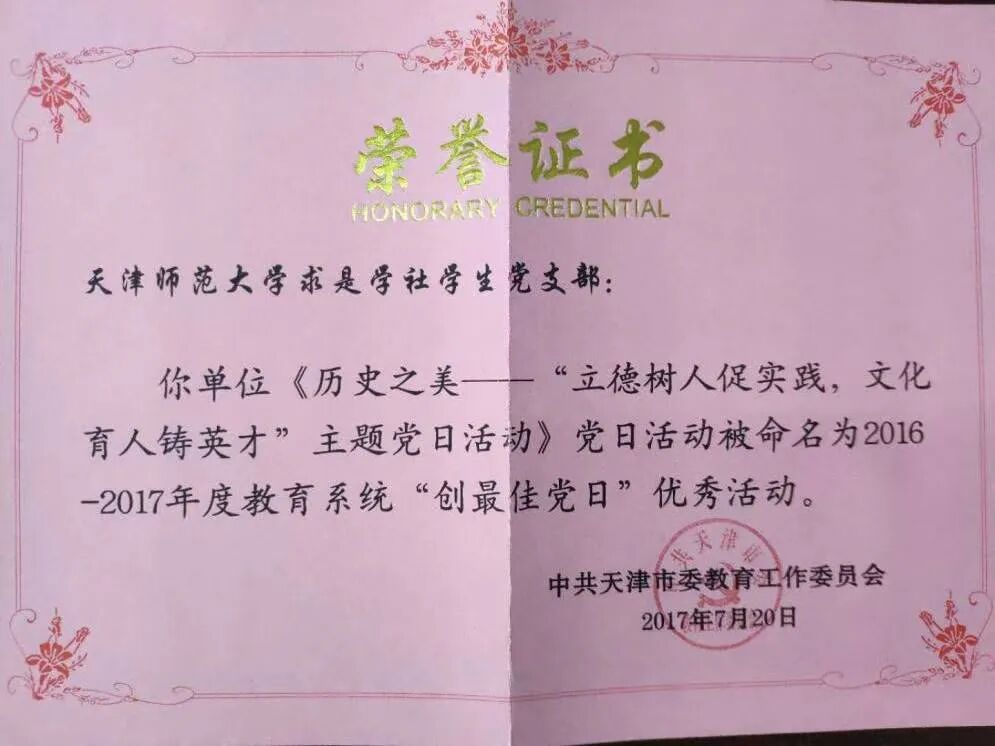 荣誉证书
HONORARY CREDENTIAL
天津师范大学求是学社学生党支部：
你单位《历史之美——“立德树人促实践，文化
育人铸英才”主题党日活动》党日活动被命名为2016
-2017年度教育系统“创最佳党日”优秀活动。
共天津市
中共天津市委教育工作委员会
2017年7月20日